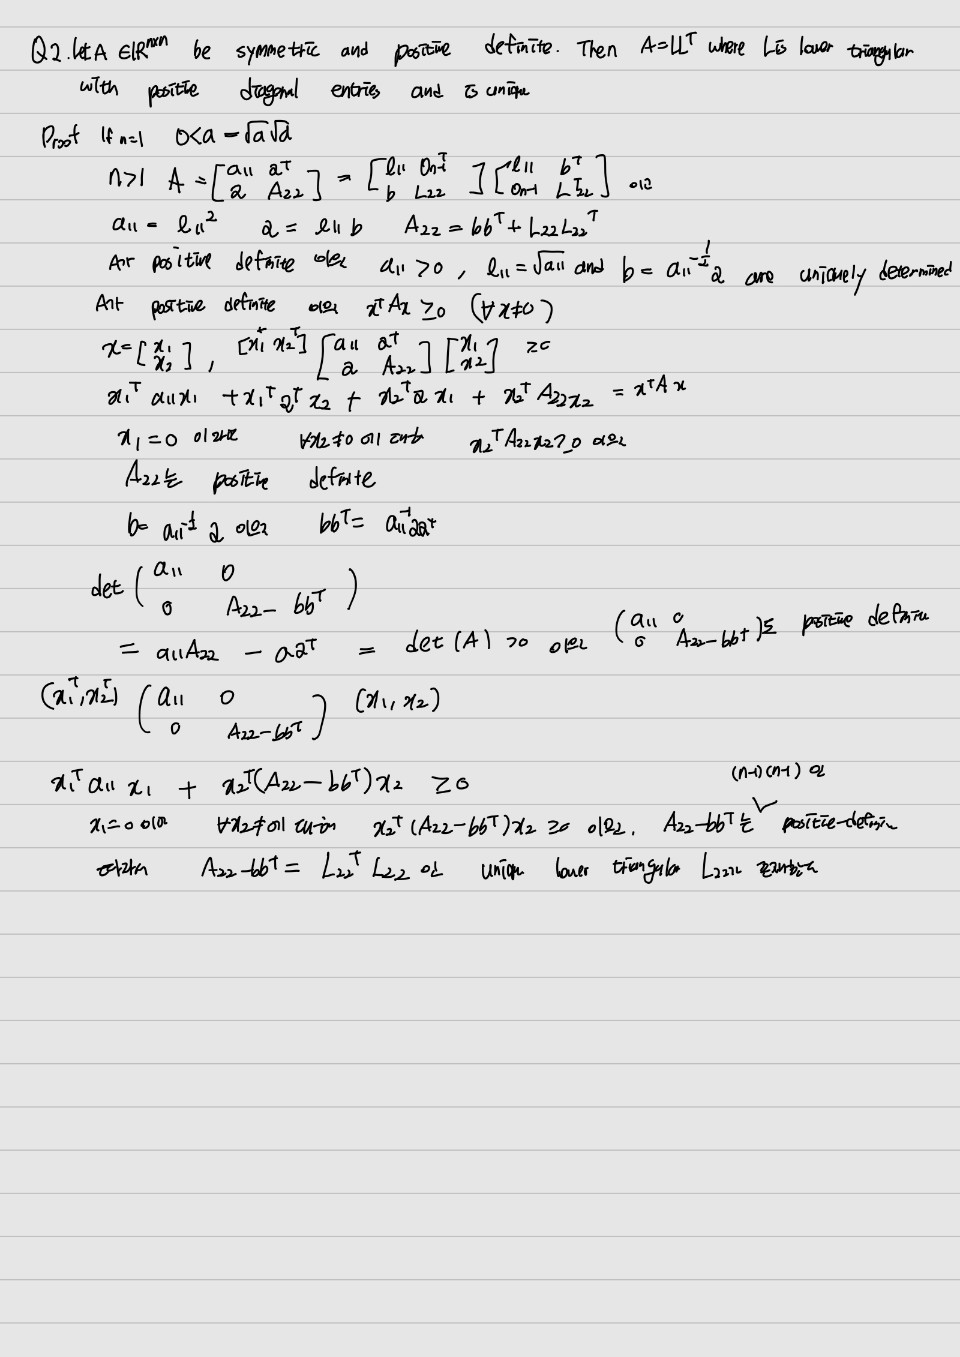 Q2. Let A ∈ ℝⁿˣⁿ be symmetric and positive definite. Then A = LLᵀ where L is lower triangular
with positie diagonal entries and is unique
Proof If n=1 0<a = √a√a
n>1 A = [a₁₁ aᵀ; a A₂₂] = [l₁₁ 0ₙ₋₁ᵀ; b L₂₂] [l₁₁ bᵀ; 0ₙ₋₁ L₂₂ᵀ] 이고
a₁₁ = l₁₁² a = l₁₁ b A₂₂ = bbᵀ + L₂₂L₂₂ᵀ
A가 positive definite 이므로 a₁₁ > 0 , l₁₁ = √a₁₁ and b = a₁₁^(-1/2) a are uniquely determined
A가 positive definite 이므로 xᵀAx ≥ 0 (∀x≠0)
x = [x₁; x₂] , [x₁ᵀ x₂ᵀ] [a₁₁ aᵀ; a A₂₂] [x₁; x₂] ≥0
x₁ᵀ a₁₁ x₁ + x₁ᵀ aᵀ x₂ + x₂ᵀ a x₁ + x₂ᵀ A₂₂ x₂ = xᵀAx
x₁ = 0 ∀x₂≠0 에 대해 x₂ᵀA₂₂x₂ ≥ 0 이므로
A₂₂는 positive definite
b = a₁₁^(-1/2) a 이므로 bbᵀ = a₁₁⁻¹aaᵀ
det (a₁₁ 0; 0 A₂₂ - bbᵀ)
= a₁₁A₂₂ - aaᵀ = det(A) > 0 이므로 (a₁₁ 0; 0 A₂₂-bbᵀ)도 positive definite
(x₁ᵀ, x₂ᵀ) (a₁₁ 0; 0 A₂₂-bbᵀ) (x₁, x₂)
x₁ᵀ a₁₁ x₁ + x₂ᵀ(A₂₂-bbᵀ)x₂ ≥ 0
(n-1)(n-1) 인
x₁ = 0 이면 ∀x₂≠0에 대해 x₂ᵀ(A₂₂-bbᵀ)x₂ ≥ 0 이므로. A₂₂-bbᵀ는 ✓ positie-definite
따라서 A₂₂-bbᵀ = L₂₂ᵀ L₂₂ 인 unique lower triangular L₂₂가 존재한다